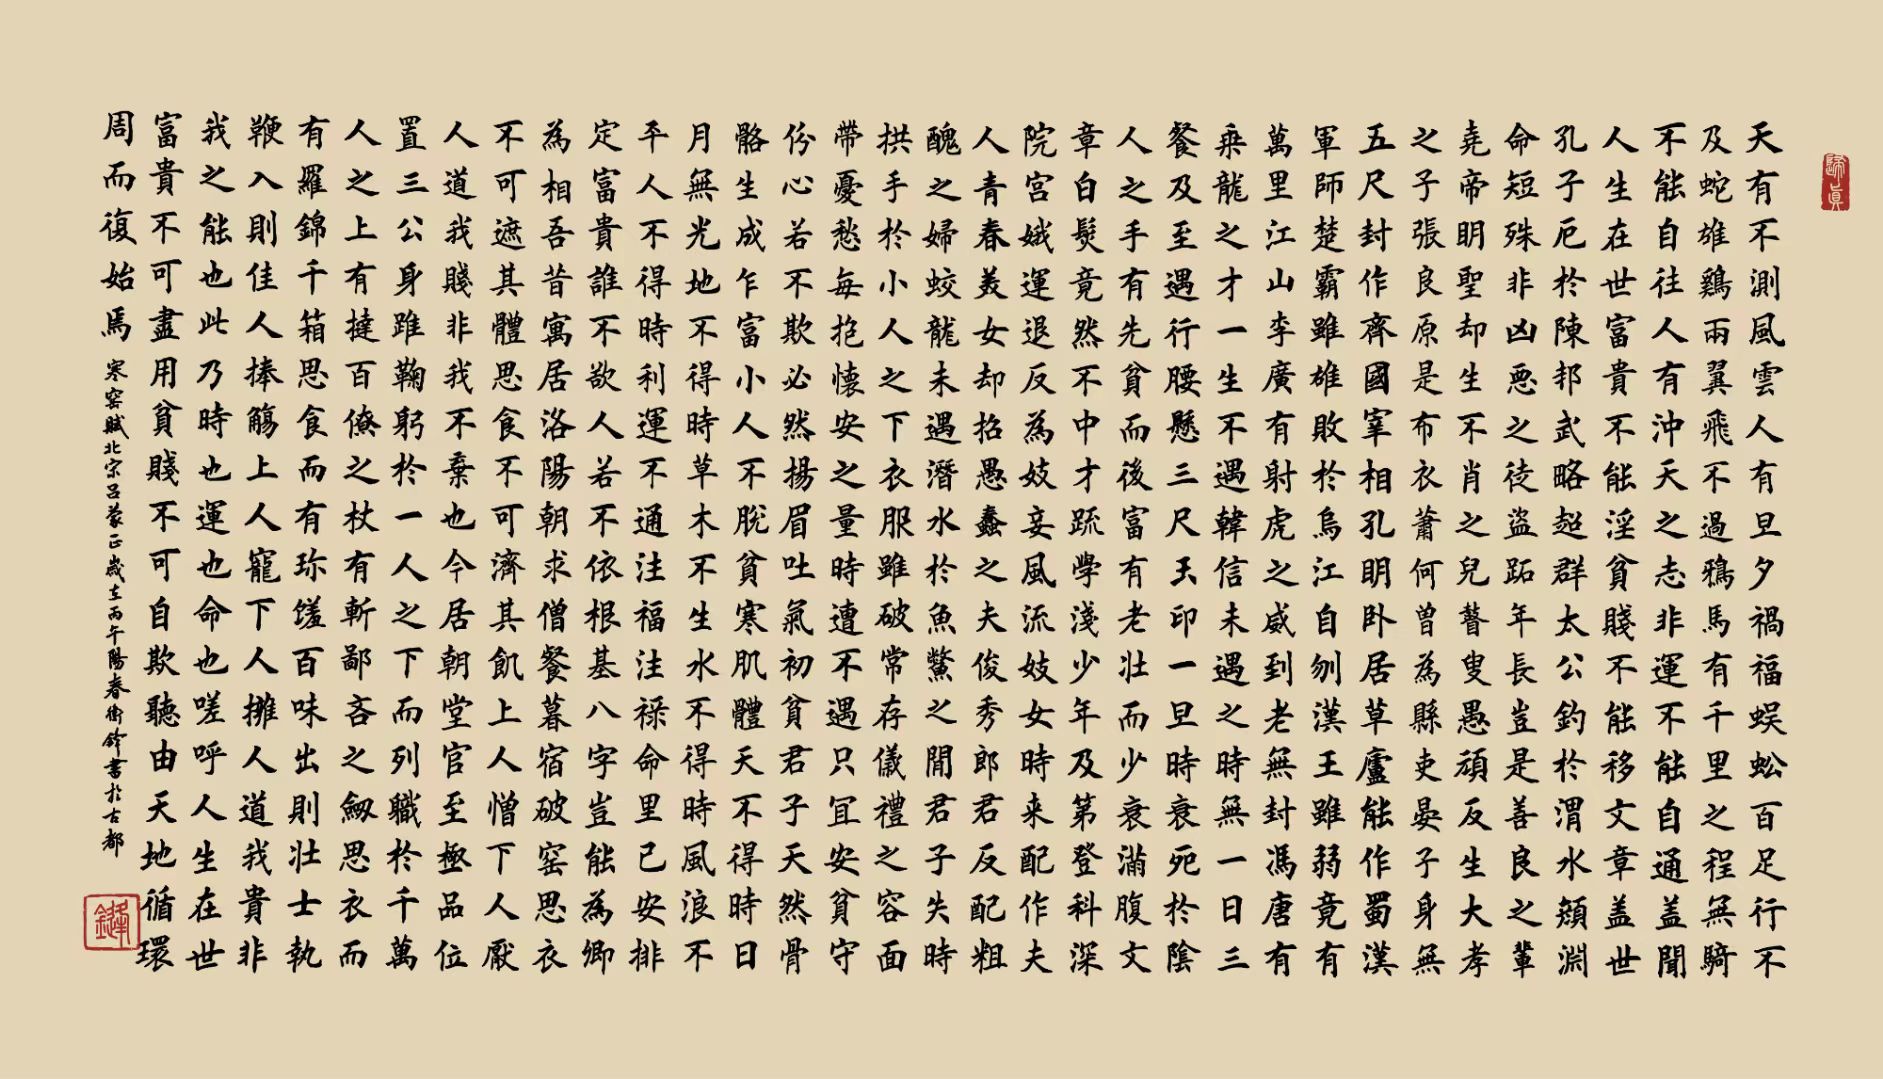 歸真
天有不測風雲人有旦夕禍福蜈蚣百足行不
及蛇雄鷄兩翼飛不過鴉馬有千里之程無騎
不能自往人有沖天之志非運不能自通盖聞
人生在世富貴不能淫貧賤不能移文章盖世
孔子厄於陳邦武略超群太公釣於渭水顏淵
命短殊非凶惡之徒盜跖年長豈是善良之輩
堯帝明聖却生不肖之兒瞽叟愚頑反生大孝
之子張良原是布衣蕭何曾為縣吏晏子身無
五尺封作齊國宰相孔明卧居草廬能作蜀漢
軍師楚霸雖雄敗於烏江自刎漢王雖弱竟有
萬里江山李廣有射虎之威到老無封馮唐有
乘龍之才一生不遇韓信未遇之時無一日三
餐及至遇行腰懸三尺玉印一旦時衰死於陰
人之手有先貧而後富有老壯而少衰滿腹文
章白髮竟然不中才疏學淺少年及第登科深
院宮娥運退反為妓妾風流妓女時来配作夫
人青春美女却招愚蠢之夫俊秀郎君反配粗
醜之婦蛟龍未遇潛水於魚鱉之間君子失時
拱手於小人之下衣服雖破常存儀禮之容面
帶憂愁每抱懷安之量時遭不遇只宜安貧守
份心若不欺必然揚眉吐氣初貧君子天然骨
骼生成乍富小人不脫貧寒肌體天不得時日
月無光地不得時草木不生水不得時風浪不
平人不得時利運不通注福注祿命里已安排
定富貴誰不欲人若不依根基八字豈能為卿
為相吾昔寓居洛陽朝求僧餐暮宿破窑思衣
不可遮其體思食不可濟其飢上人憎下人厭
人道我賤非我不棄也今居朝堂官至極品位
置三公身雖鞠躬於一人之下而列職於千萬
人之上有撻百僚之杖有斬鄙吝之劔思衣而
有羅錦千箱思食而有珍馐百味出則壯士執
鞭入則佳人捧觴上人寵下人擁人道我貴非
我之能也此乃時也運也命也嗟呼人生在世
富貴不可盡用貧賤不可自欺聽由天地循環
周而復始焉
寒窑賦北宋呂蒙正歲在丙午陽春衛鋒書於古都